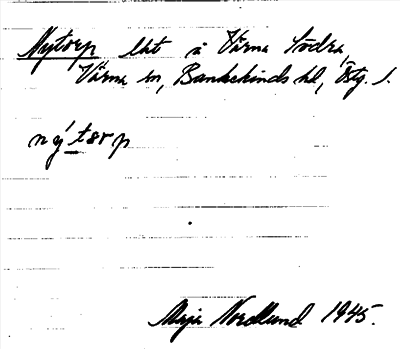 Nytorp lht å Värna Södra,
Värna sn, Bankekinds hd, Östg. l.
ny´torp
Maja Nordlund 1945.